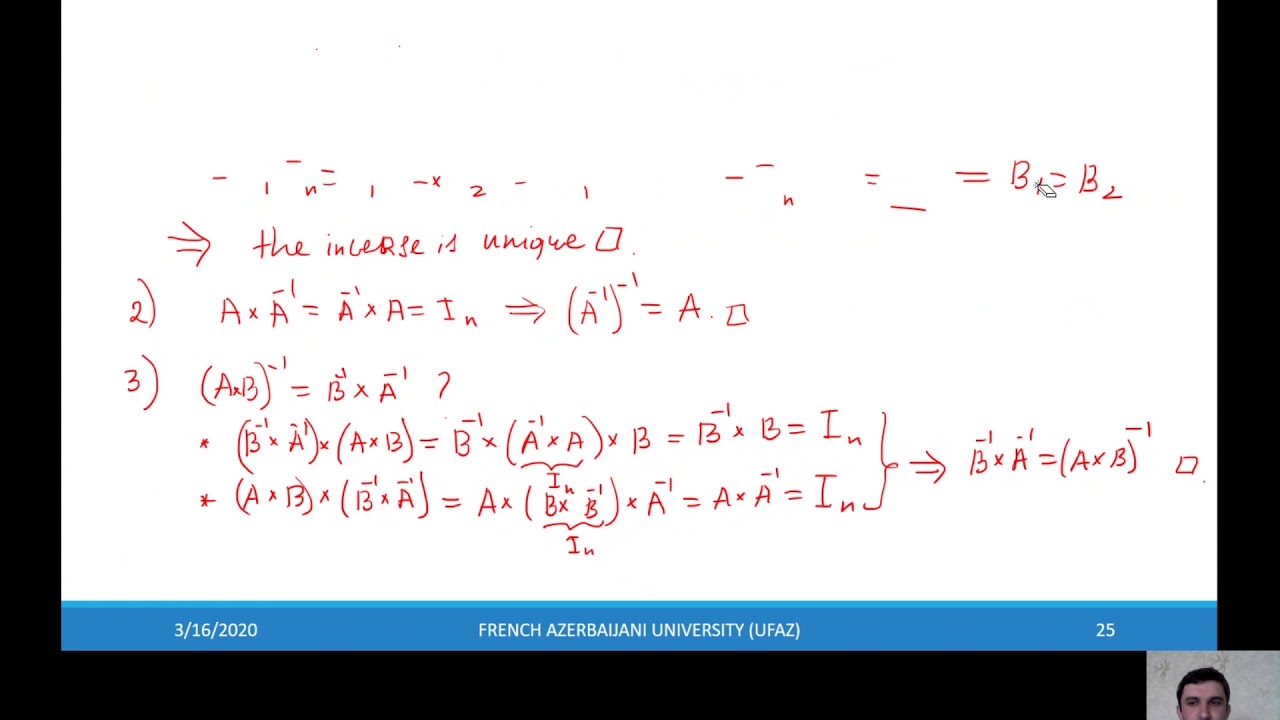 = B₁ = B₂
⇒ the inverse is unique □.
2) A × A⁻¹ = A⁻¹ × A = Iₙ ⇒ (A⁻¹)⁻¹ = A. □
3) (A×B)⁻¹ = B⁻¹ × A⁻¹ ?
* (B⁻¹ × A⁻¹) × (A × B) = B⁻¹ × (A⁻¹ × A) × B = B⁻¹ × B = Iₙ
Iₙ
* (A × B) × (B⁻¹ × A⁻¹) = A × (B × B⁻¹) × A⁻¹ = A × A⁻¹ = Iₙ
Iₙ
} ⇒ B⁻¹ × A⁻¹ = (A × B)⁻¹ □.
3/16/2020
FRENCH AZERBAIJANI UNIVERSITY (UFAZ)
25